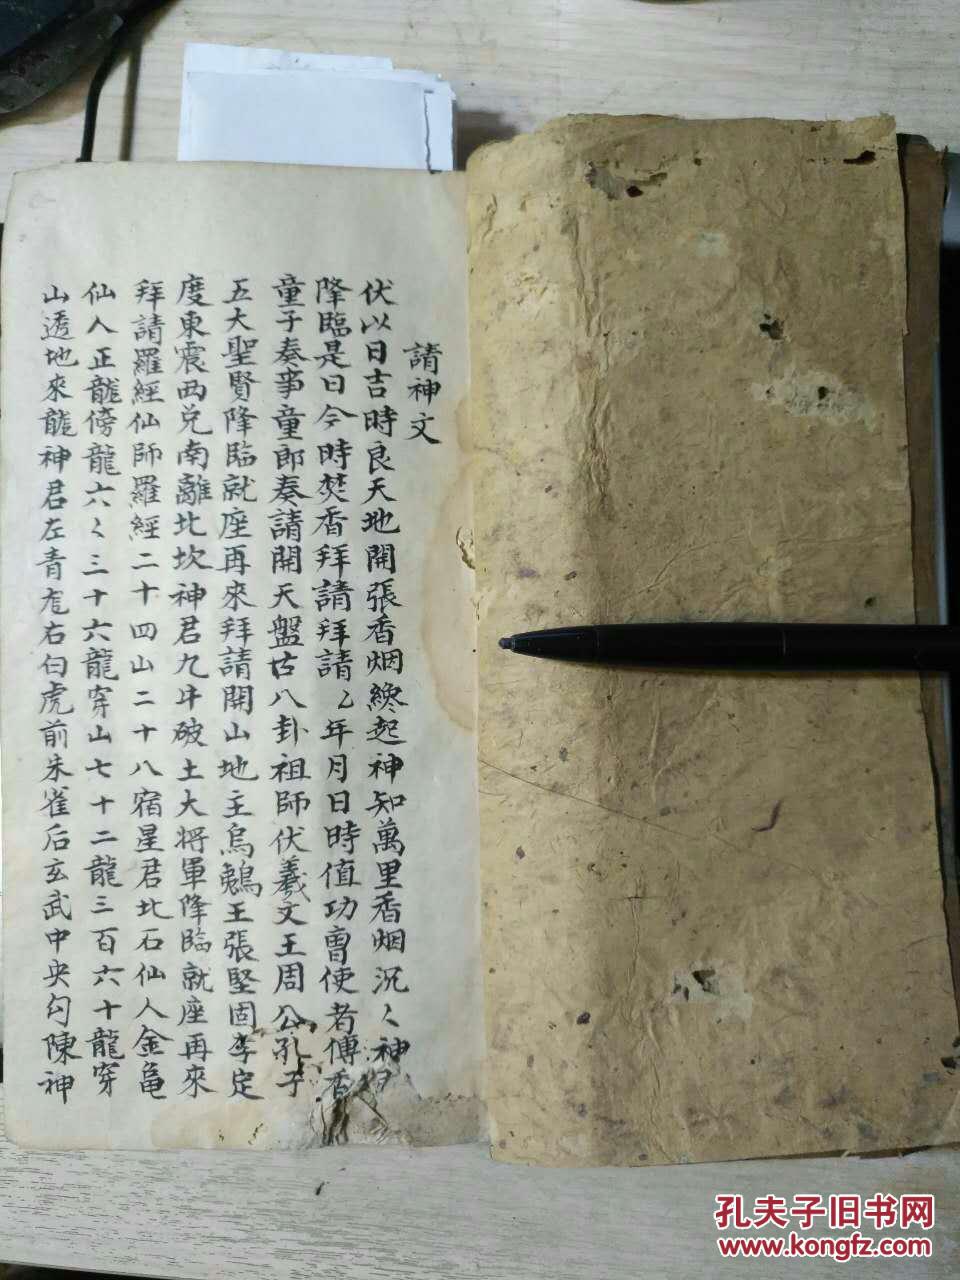 請神文
伏以日吉時良天地開張香烟纔起神知萬里香烟沉〻神
降臨是日今時焚香拜請拜請〻年月日時值功曹使者傳香
童子奏事童郎奏請開天盤古八卦祖師伏羲文王周公孔子
五大聖賢降臨就座再來拜請開山地主烏鶏王張堅固李定
度東震西兌南離北坎神君九牛破土大將軍降臨就座再來
拜請羅經仙師羅經二十四山二十八宿星君北石仙人金龟
仙人正龍傍龍六〻三十六龍穿山七十二龍三百六十龍穿
山透地來龍神君左青龙右白虎前朱雀后玄武中央勾陳神
孔夫子旧书网
www.kongfz.com